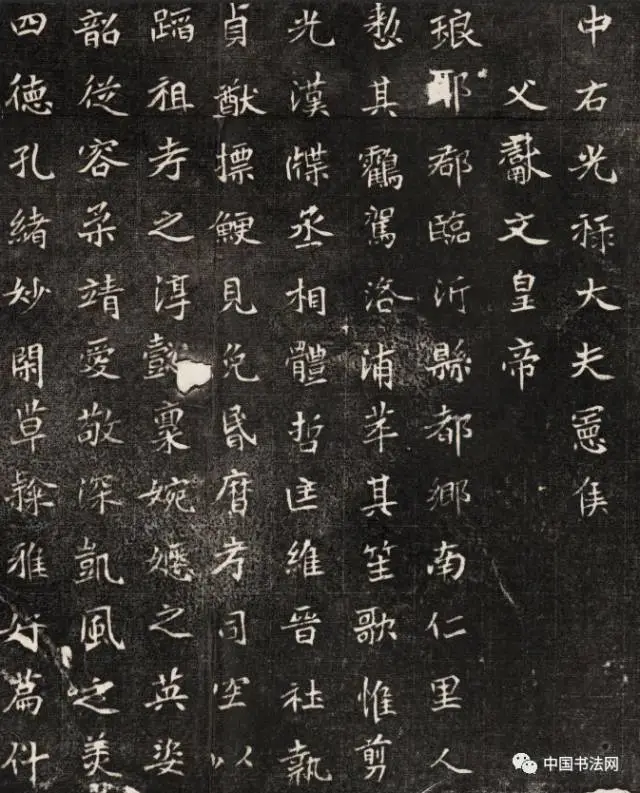 中右光祿大夫憲侯
父獻文皇帝
琅耶郡臨沂縣都鄉南仁里人
其鸖駕洛浦萃其笙歌惟剪
光漢牒丞相體哲匡維晉社執
貞猷摽鯁見免昏曆方司空以
蹈祖考之淳懿稟婉嫕之英姿
韶從容柔靖愛敬深凱風之美
四德孔緒妙閑草隸雅好篇什
中国书法网